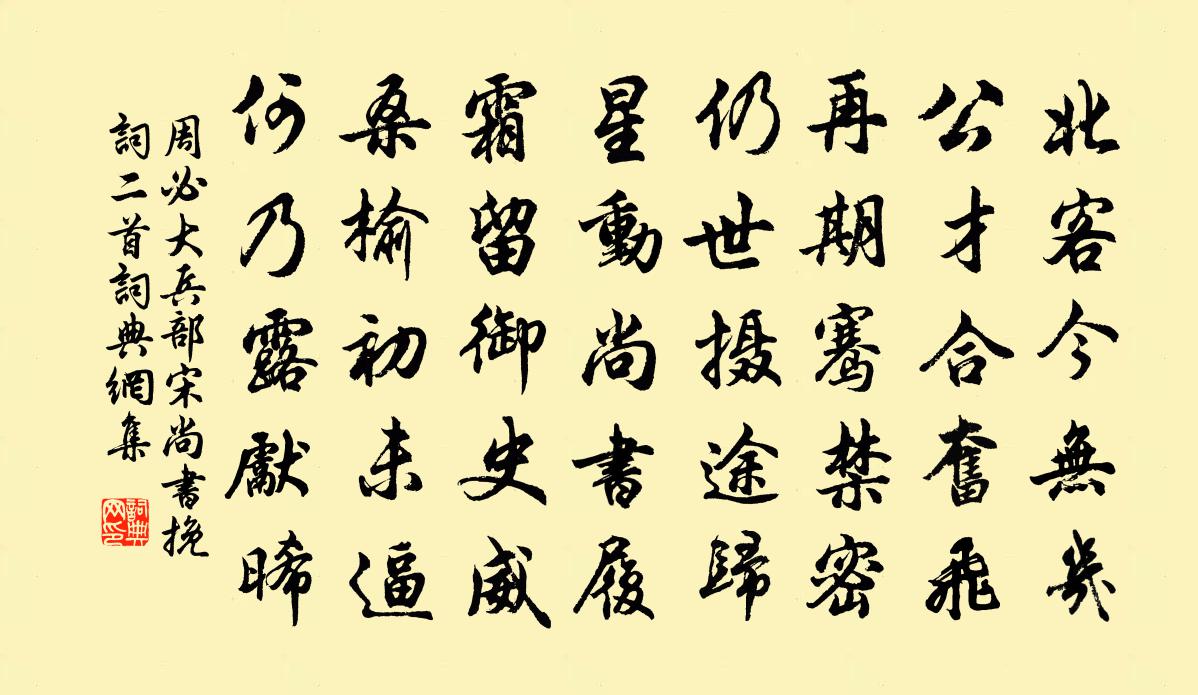 北客今無幾
公才合奮飛
再期騫禁密
仍世摄途歸
星動尚書履
霜留御史威
桑榆初未逼
何乃露獻晞
周必大兵部宋尚書挽
詞二首詞典網集
詞典
网印